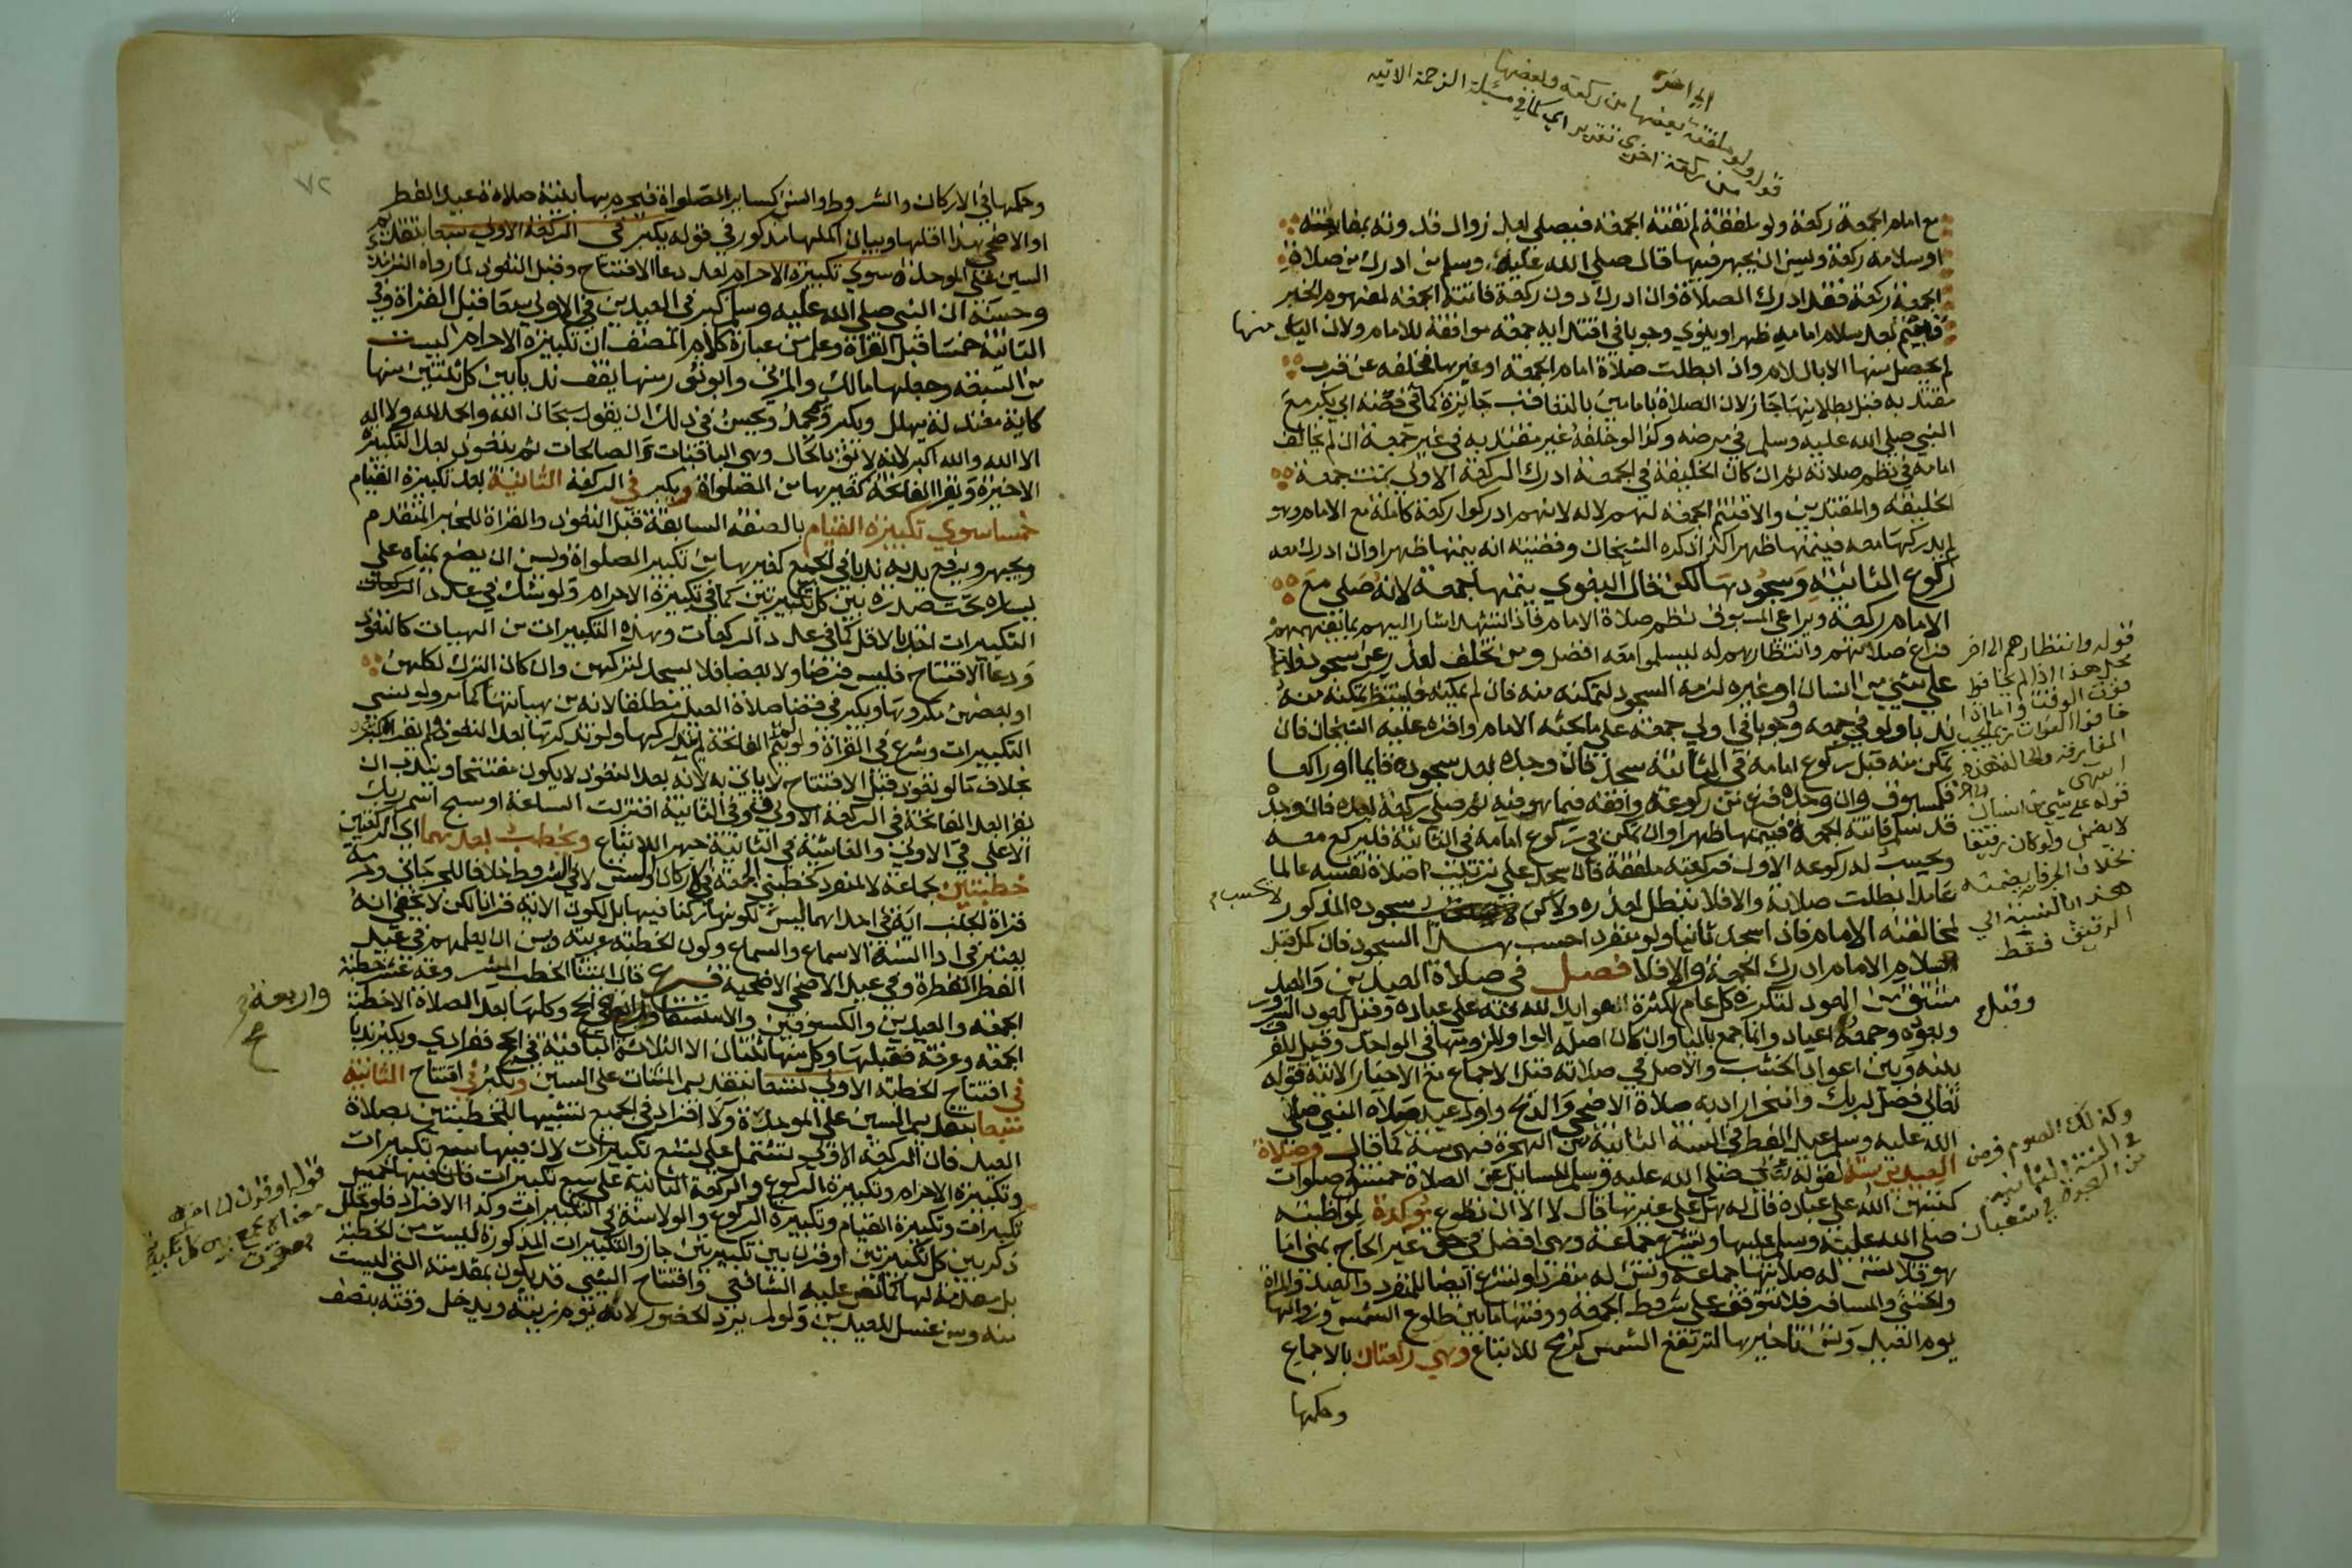 الى اخره
قوله ولو ملفقة بعضها من ركعة وبعضها
من ركعة اخرى تقدير اي كما في مسئلة الزحمة الاتية
مع امام الجمعة ركعة ولو ملفقة لم تفته الجمعة فيصلي بعد زوال قدوته بمفارقته
او سلامه ركعة ويسن ان يجهر فيها قال صلى الله عليه وسلم من ادرك من صلاة
الجمعة ركعة فقد ادرك الصلاة وان ادرك دون ركعة فاتته الجمعة لمفهوم الخبر
فيتم بعد سلام امامه ظهرا وينوي وجوبا في اقتدايه جمعة موافقة للامام ولان الياس منها
لم يحصل منها الا بالسلام واذا بطلت صلاة امام الجمعة او غيرها فخلفه عن قرب
مقتد به قبل بطلانها جاز لان الصلاة بامامين بالتعاقب جائزة كما في قصة ابي بكر مع
النبي صلى الله عليه وسلم في مرضه وكذا لو خلفه غير مقتد به في غير جمعة ان لم يخالف
امامه في نظم صلاته ثم ان كان الخليفة في الجمعة ادرك الركعة الاولى تمت جمعة
الخليفة والمقتدين والا فتتم الجمعة لهم لا له لانهم ادركوا ركعة كاملة مع الامام وهو
لم يدركها معه فيتمها ظهرا كذا ذكره الشيخان وقضيته انه يتمها ظهرا وان ادرك معه
ركوع الثانية وسجودها لكن قال البغوي يتمها جمعة لانه صلى مع
الامام ركعة ويراعي المسبوق نظم صلاة الامام فاذا تشهد اشار اليهم بما يفهمهم
فراغ صلاتهم وانتظارهم له ليسلموا معه افضل ومن تخلف لعذر عن سجود فامكنه
على شيء من انسان او غيره لزمه السجود لتمكنه منه فان لم يمكنه فلينتظر تمكنه منه
ندبا ولو في جمعة ووجوبا في اولى جمعة على ما بحثه الامام واقره عليه الشيخان فان
تمكن منه قبل ركوع امامه في الثانية سجد فان وجده بعد سجوده قايما او راكعا
فكمسبوق وان وجده فرغ من ركوعه وافقه فيما هو فيه ثم صلى ركعة بعده فان وجده
قد سلم فاتته الجمعة فيتمها ظهرا وان تمكن في ركوع امامه في الثانية فليركع معه
ويحسب له ركوعه الاول فركعته ملفقة فان سجد على ترتيب صلاة نفسه عالما
عامدا بطلت صلاته والا فلا تبطل لعذره ولكن لا يحسب سجوده المذكور
لمخالفته الامام فاذا سجد ثانيا ولو منفردا حسب هذا السجود فان كمل قبل
سلام الامام ادرك الجمعة والا فلا فصل في صلاة العيدين والعيد
مشتق من العود لتكرره كل عام لكثرة عوايد الله فيه على عباده وقيل لعود السرور
بعوده وجمعه اعياد وانما جمع بالياء وان كان اصله الواو للزومها في الواحد وقيل للفرق
بينه وبين اعواد الخشب والاصل في صلاته قبل الاجماع مع الاخبار الاتية قوله
تعالى فصل لربك وانحر اراد به صلاة الاضحى والذبح واول عيد صلاه النبي صلى
الله عليه وسلم عيد الفطر في السنة الثانية من الهجرة فهي سنة كما قال وصلاة
العيدين سنة لقوله صلى الله عليه وسلم للسايل عن الصلاة خمس صلوات
كتبهن الله على عباده قال له هل علي غيرها قال لا الا ان تطوع مؤكدة لمواظبته
صلى الله عليه وسلم عليها وتشرع جماعة وهي افضل في حق غير الحاج بمنى اما
هو فلا تسن له صلاتها جماعة وتسن له منفردا وتشرع ايضا للمنفرد والعبد والمراة
والخنثى والمسافر فلا تتوقف على شروط الجمعة ووقتها ما بين طلوع الشمس وزوالها
يوم العيد ويسن تاخيرها لترتفع الشمس كرمح للاتباع وهي ركعتان بالاجماع
وحكمها
قوله وانتظارهم الى اخر
محل هذا اذا لم يخافوا
فوت الوقت واما اذا
خافوا الفوات
المفارقة والحالة هذه
انتهى
قوله على شيء من انسان
لا يضمن ولو كان رقيقا
بخلاف الحر فان يضمنه
هذا بالنسبة الى
الرقيق فقط
لا يحسب
وقيل
وكذلك الصوم فرض
في السنة الثانية
من الهجرة في شعبان
٧٢
وحكمها في الاركان والشروط والسنن كساير الصلوات فيحرم بها بنية صلاة عيد الفطر
او الاضحى هذا اقلها وبيان اكملها مذكور في قوله يكبر في الركعة الاولى سبعا بتقديم
السين على الموحدة سوى تكبيرة الاحرام بعد دعا الافتتاح وقبل التعوذ لما رواه الترمذي
وحسنه ان النبي صلى الله عليه وسلم كبر في العيدين في الاولى سبعا قبل القراة وفي
الثانية خمسا قبل القراة وعلم من عبارة كلام المصنف ان تكبيرة الاحرام ليست
من السبعة وجعلها مالك والمزني وابو ثور منها يقف ندبا بين كل ثنتين منها
كاية معتدلة يهلل ويكبر ويحمد ويحسن في ذلك ان يقول سبحان الله والحمد لله ولا اله
الا الله والله اكبر لانه لايق بالحال وهي الباقيات الصالحات ثم يتعوذ بعد التكبيرة
الاخيرة ويقرا الفاتحة كغيرها من الصلوات ويكبر في الركعة الثانية بعد تكبيرة القيام
خمسا سوى تكبيرة القيام بالصفة السابقة قبل التعوذ والقراة للخبر المتقدم
ويجهر ويرفع يديه ندبا في الجميع كغيرها من تكبير الصلوات ويسن ان يضع يمناه على
يساره تحت صدره بين كل تكبيرتين كما في تكبيرة الاحرام ولو شك في عدد
التكبيرات اخذ بالاقل كما في عدد الركعات وهذه التكبيرات من الهيات كالتعوذ
ودعا الافتتاح فليس فرضا ولا بعضا فلا يسجد لتركهن وان كان الترك لكلهن
او بعضهن مكروها ويكبر في قضا صلاة العيد مطلقا لانه من هياتها كما مر ولو نسي
التكبيرات وشرع في القراة ولو لم يتم الفاتحة لم يتداركها ولو تذكرها بعد التعوذ ولم يقرا كبر
بخلاف ما لو تعوذ قبل الافتتاح لا ياتي به لانه بعد التعوذ لا يكون مفتتحا ويندب ان
يقرا بعد الفاتحة في الركعة الاولى ق وفي الثانية اقتربت الساعة او سبح اسم ربك
الاعلى في الاولى والغاشية في الثانية جهرا للاتباع ويخطب بعدهما اي الركعتين
خطبتين بجماعة لا لمنفرد كخطبتي الجمعة في الاركان والسنن لا في الشروط خلافا للجرجاني وحرمة
قراة الجنب اية في احداهما ليس لكونها ركنا فيها بل لكون الاية قرانا لكن لا يخفى انه
يعتبر في ادا السنة الاسماع والسماع وكون الخطبة عربية ويسن ان يعلمهم في عيد
الفطر الفطرة وفي عيد الاضحى الاضحية فرع قال ايمتنا الخطب المشروعة عشر خطبة
الجمعة والعيدين والكسوفين والاستسقا في الحج وكلها بعد الصلاة الا خطبة
الجمعة وعرفة فقبلها وكل منها ثنتان الا الثلاثة الباقية في الحج ففرادى ويكبر ندبا
في افتتاح الخطبة الاولى تسعا بتقديم المثناة على السين ويكبر في افتتاح الثانية
سبعا بتقديم السين على الموحدة ولا افراد في الجميع تشبيها للخطبتين بصلاة
العيد فان الركعة الاولى تشتمل على تسع تكبيرات لان فيها سبع تكبيرات
وتكبيرة الاحرام وتكبيرة الركوع والركعة الثانية على سبع تكبيرات فان فيها خمس
تكبيرات وتكبيرة القيام وتكبيرة الركوع والولا سنة في التكبيرات وكذا الافراد فلو تخلل
ذكر بين كل تكبيرتين او قرن بين تكبيرتين جاز والتكبيرات المذكورة ليست من الخطبة
بل مقدمة لها كما نص عليه الشافعي وافتتاح الشيء قد يكون بمقدمته التي ليست
منه وسن غسل للعيدين ولو لم يرد الحضور لانه يوم زينة ويدخل وقته بنصف
واربعة
قوله او قرن الى اخره
معناه يجمع بين كل تكبيرتين